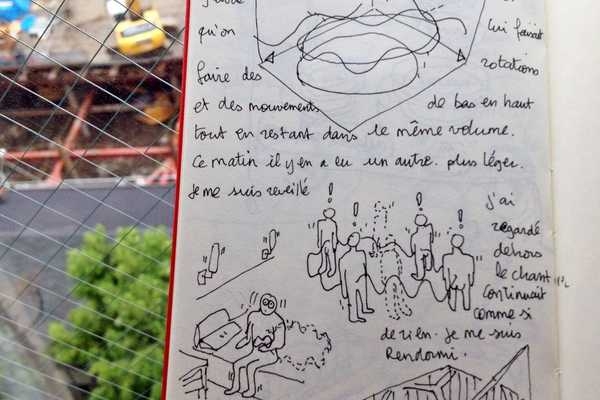 qu'on lui faisait
faire des rotations
et des mouvements de bas en haut
tout en restant dans le même volume.
Ce matin il y en a eu un autre. plus léger.
Je me suis reveillé
! ! ! !
j'ai
regardé
dehors
le chantier
continuait
comme si
de rien. Je me suis
Rendormi.